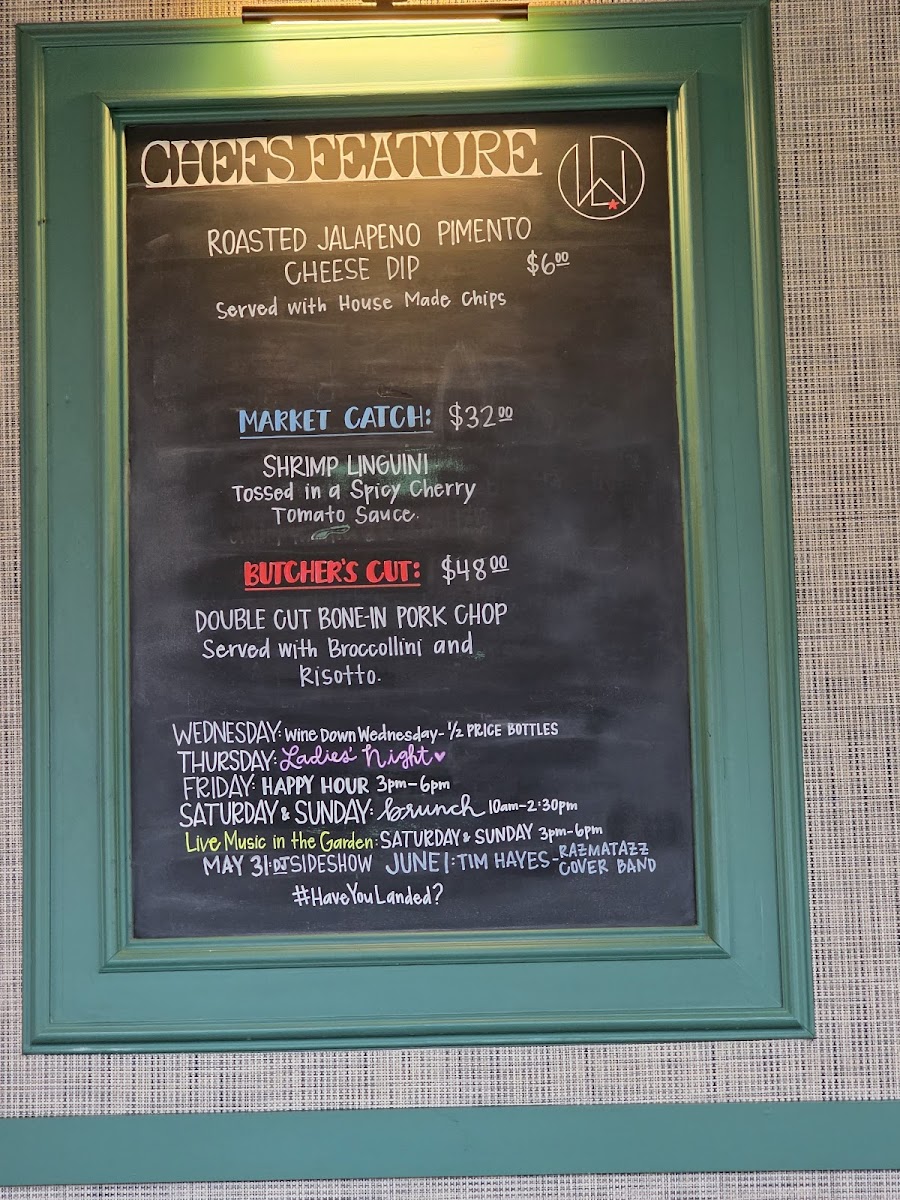 CHEFS FEATURE
ROASTED JALAPENO PIMENTO
CHEESE DIP $6.00
Served with House Made Chips
MARKET CATCH: $32.00
SHRIMP LINGUINI
Tossed in a Spicy Cherry
Tomato Sauce.
BUTCHER'S CUT: $48.00
DOUBLE CUT BONE-IN PORK CHOP
Served with Broccollini and
Risotto.
WEDNESDAY: Wine Down Wednesday - 1/2 PRICE BOTTLES
THURSDAY: Ladies' Night ♥
FRIDAY: HAPPY HOUR 3pm-6pm
SATURDAY & SUNDAY: brunch 10am-2:30pm
Live Music in the Garden: SATURDAY & SUNDAY 3pm-6pm
MAY 31: DJ SIDESHOW JUNE 1: TIM HAYES - RAZMATAZZ
COVER BAND
#HaveYouLanded?